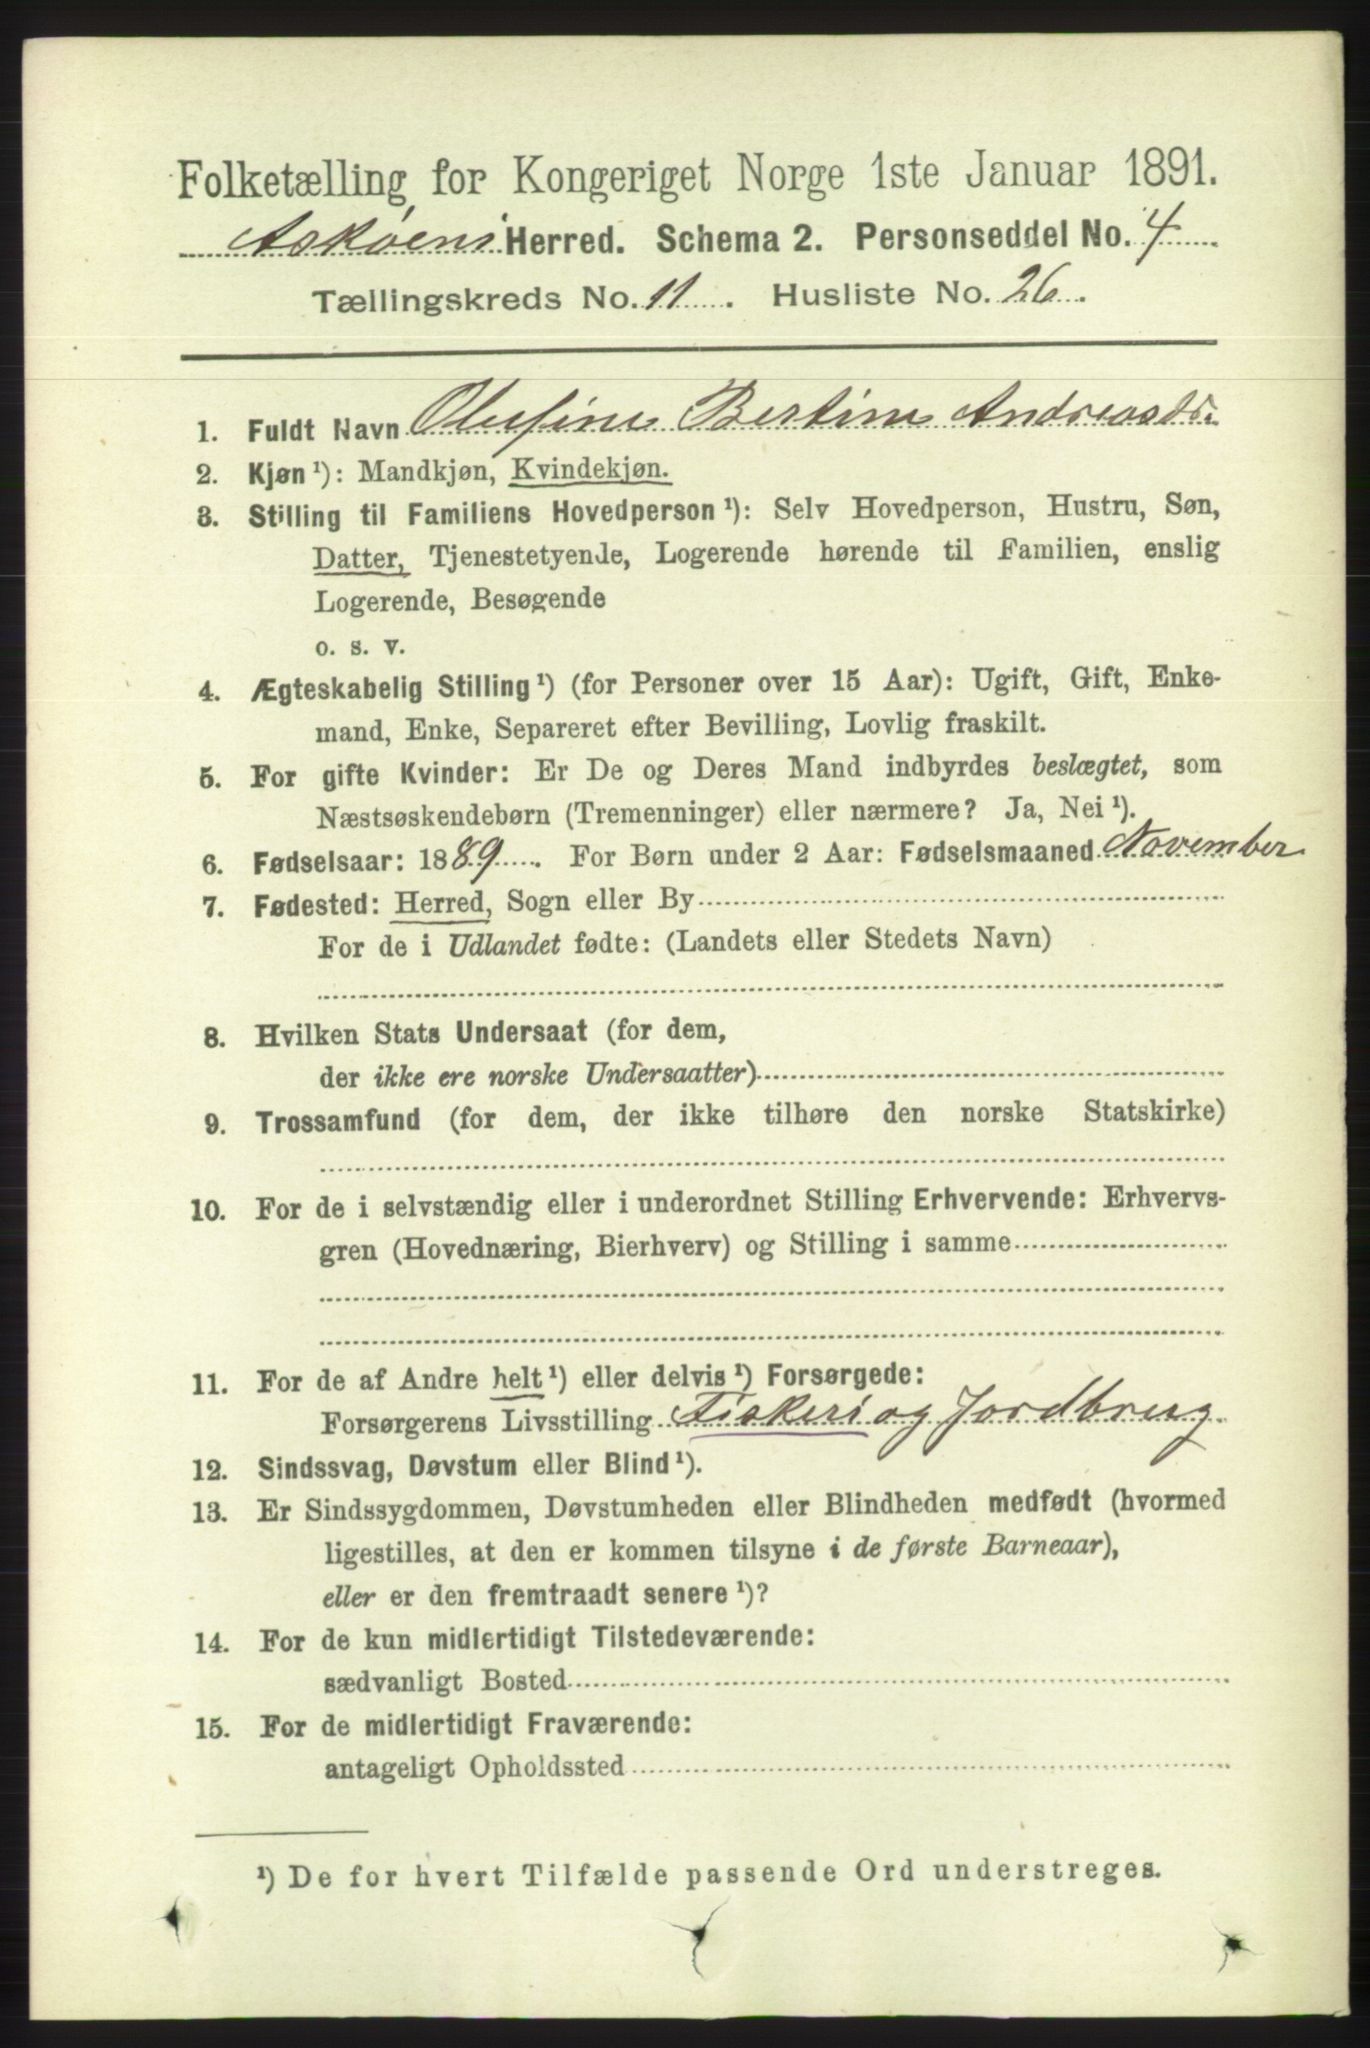 Folketælling for Kongeriget Norge 1ste Januar 1891.
Askøens Herred. Schema 2. Personseddel No. 4
Tællingskreds No. 11. Husliste No. 26.
1. Fuldt Navn Olufine Bertine Andreasdr.
2. Kjøn ¹): Mandkjøn, Kvindekjøn.
3. Stilling til Familiens Hovedperson ¹): Selv Hovedperson, Hustru, Søn,
Datter, Tjenestetyende, Logerende hørende til Familien, enslig
Logerende, Besøgende
o. s. v.
4. Ægteskabelig Stilling ¹) (for Personer over 15 Aar): Ugift, Gift, Enke-
mand, Enke, Separeret efter Bevilling, Lovlig fraskilt.
5. For gifte Kvinder: Er De og Deres Mand indbyrdes beslægtet, som
Næstsøskendebørn (Tremenninger) eller nærmere? Ja, Nei ¹).
6. Fødselsaar: 1889. For Børn under 2 Aar: Fødselsmaaned November
7. Fødested: Herred, Sogn eller By
For de i Udlandet fødte: (Landets eller Stedets Navn)
8. Hvilken Stats Undersaat (for dem,
der ikke ere norske Undersaatter)
9. Trossamfund (for dem, der ikke tilhøre den norske Statskirke)
10. For de i selvstændig eller i underordnet Stilling Erhvervende: Erhvervs-
gren (Hovednæring, Bierhverv) og Stilling i samme
11. For de af Andre helt ¹) eller delvis ¹) Forsørgede:
Forsørgerens Livsstilling Fiskeri og Jordbrug
12. Sindssvag, Døvstum eller Blind ¹).
13. Er Sindssygdommen, Døvstumheden eller Blindheden medfødt (hvormed
ligestilles, at den er kommen tilsyne i de første Barneaar),
eller er den fremtraadt senere ¹)?
14. For de kun midlertidigt Tilstedeværende:
sædvanligt Bosted
15. For de midlertidigt Fraværende:
antageligt Opholdssted
¹) De for hvert Tilfælde passende Ord understreges.